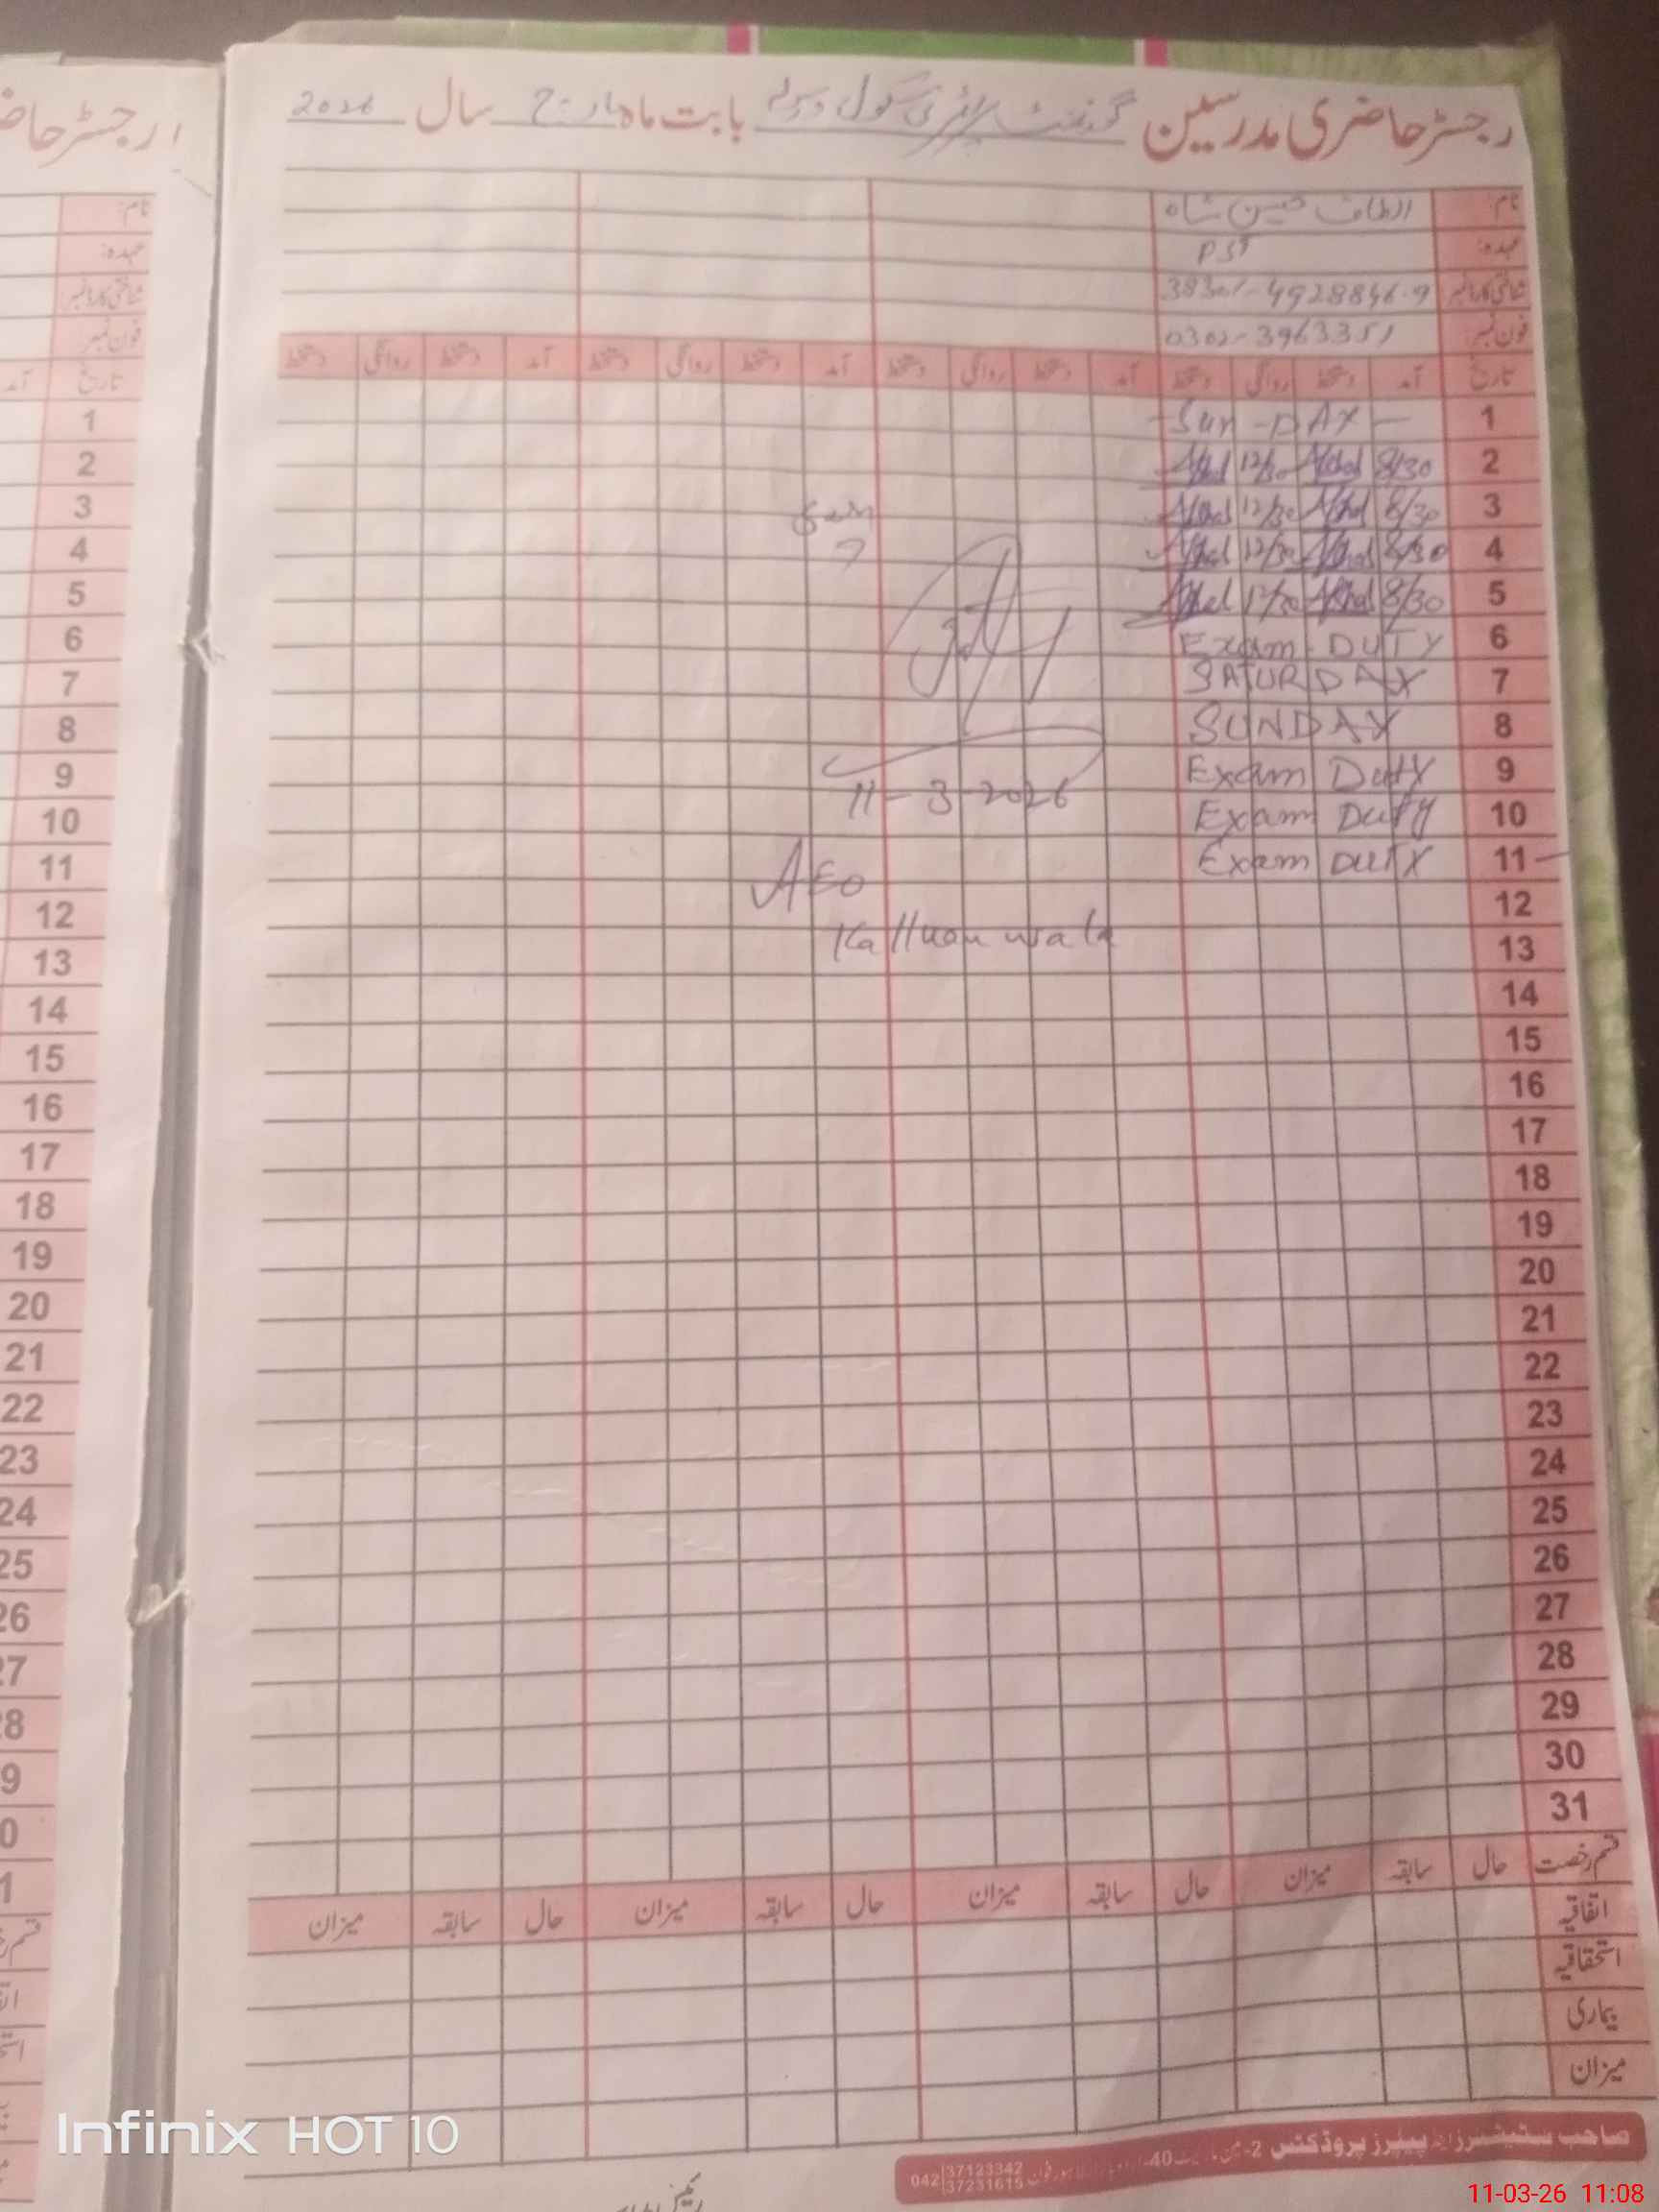 رجسٹر حاضری مدرسین گورنمنٹ پرائمری سکول بابت ماہ مارچ سال 2026
نام: الطاف حسین شاہ
عہدہ: PST
شناختی کارڈ نمبر 38301-4928846-9
فون نمبر 0302-3963351
تاریخ آمد دستخط روانگی دستخط آمد دستخط روانگی دستخط آمد دستخط روانگی دستخط آمد دستخط روانگی دستخط
1 - Sun - DAY -
2 8/30 12/30
3 8/30 12/30
4 8/30 12/30
5 8/30 12/30
6 Exam DUTY
7 SATURDAY
8 SUNDAY
9 Exam Duty
10 Exam Duty
11 Exam DUTY
11-3-2026
AEO
Kalluanwala
12
13
14
15
16
17
18
19
20
21
22
23
24
25
26
27
28
29
30
31
قسم رخصت حال سابقہ میزان حال سابقہ میزان حال سابقہ میزان حال سابقہ میزان
اتفاقیہ
استحقاقیہ
بیماری
میزان
صاحب سٹیشنرز اینڈ پیپرز پروڈکٹس
042 37123342
37231615
رجسٹر حاضری
نام:
عہدہ:
شناختی کارڈ نمبر:
فون نمبر:
تاریخ آمد
1
2
3
4
5
6
7
8
9
10
11
12
13
14
15
16
17
18
19
20
21
22
23
24
25
26
27
28
9
0
1
Infinix HOT 10
11-03-26 11:08